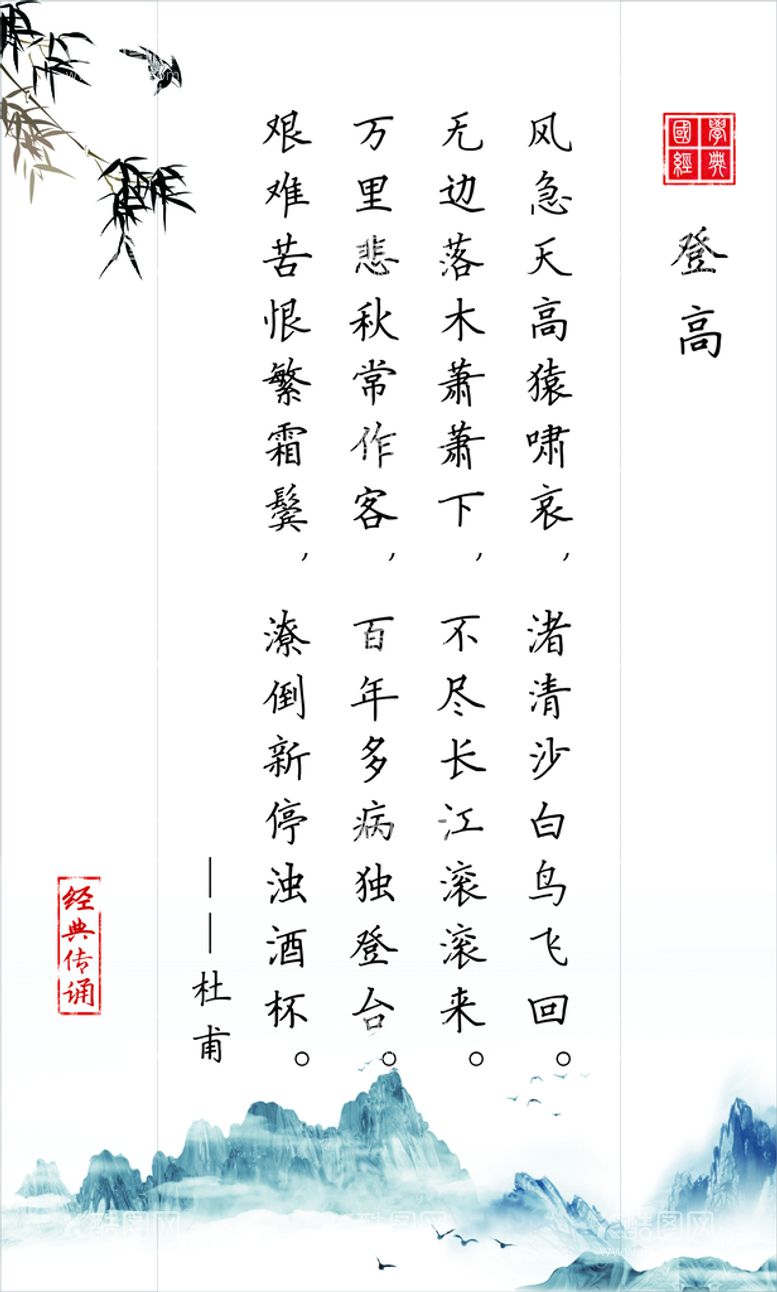 國學經典
登高
风急天高猿啸哀，渚清沙白鸟飞回。
无边落木萧萧下，不尽长江滚滚来。
万里悲秋常作客，百年多病独登台。
艰难苦恨繁霜鬓，潦倒新停浊酒杯。
——杜甫
经典传诵